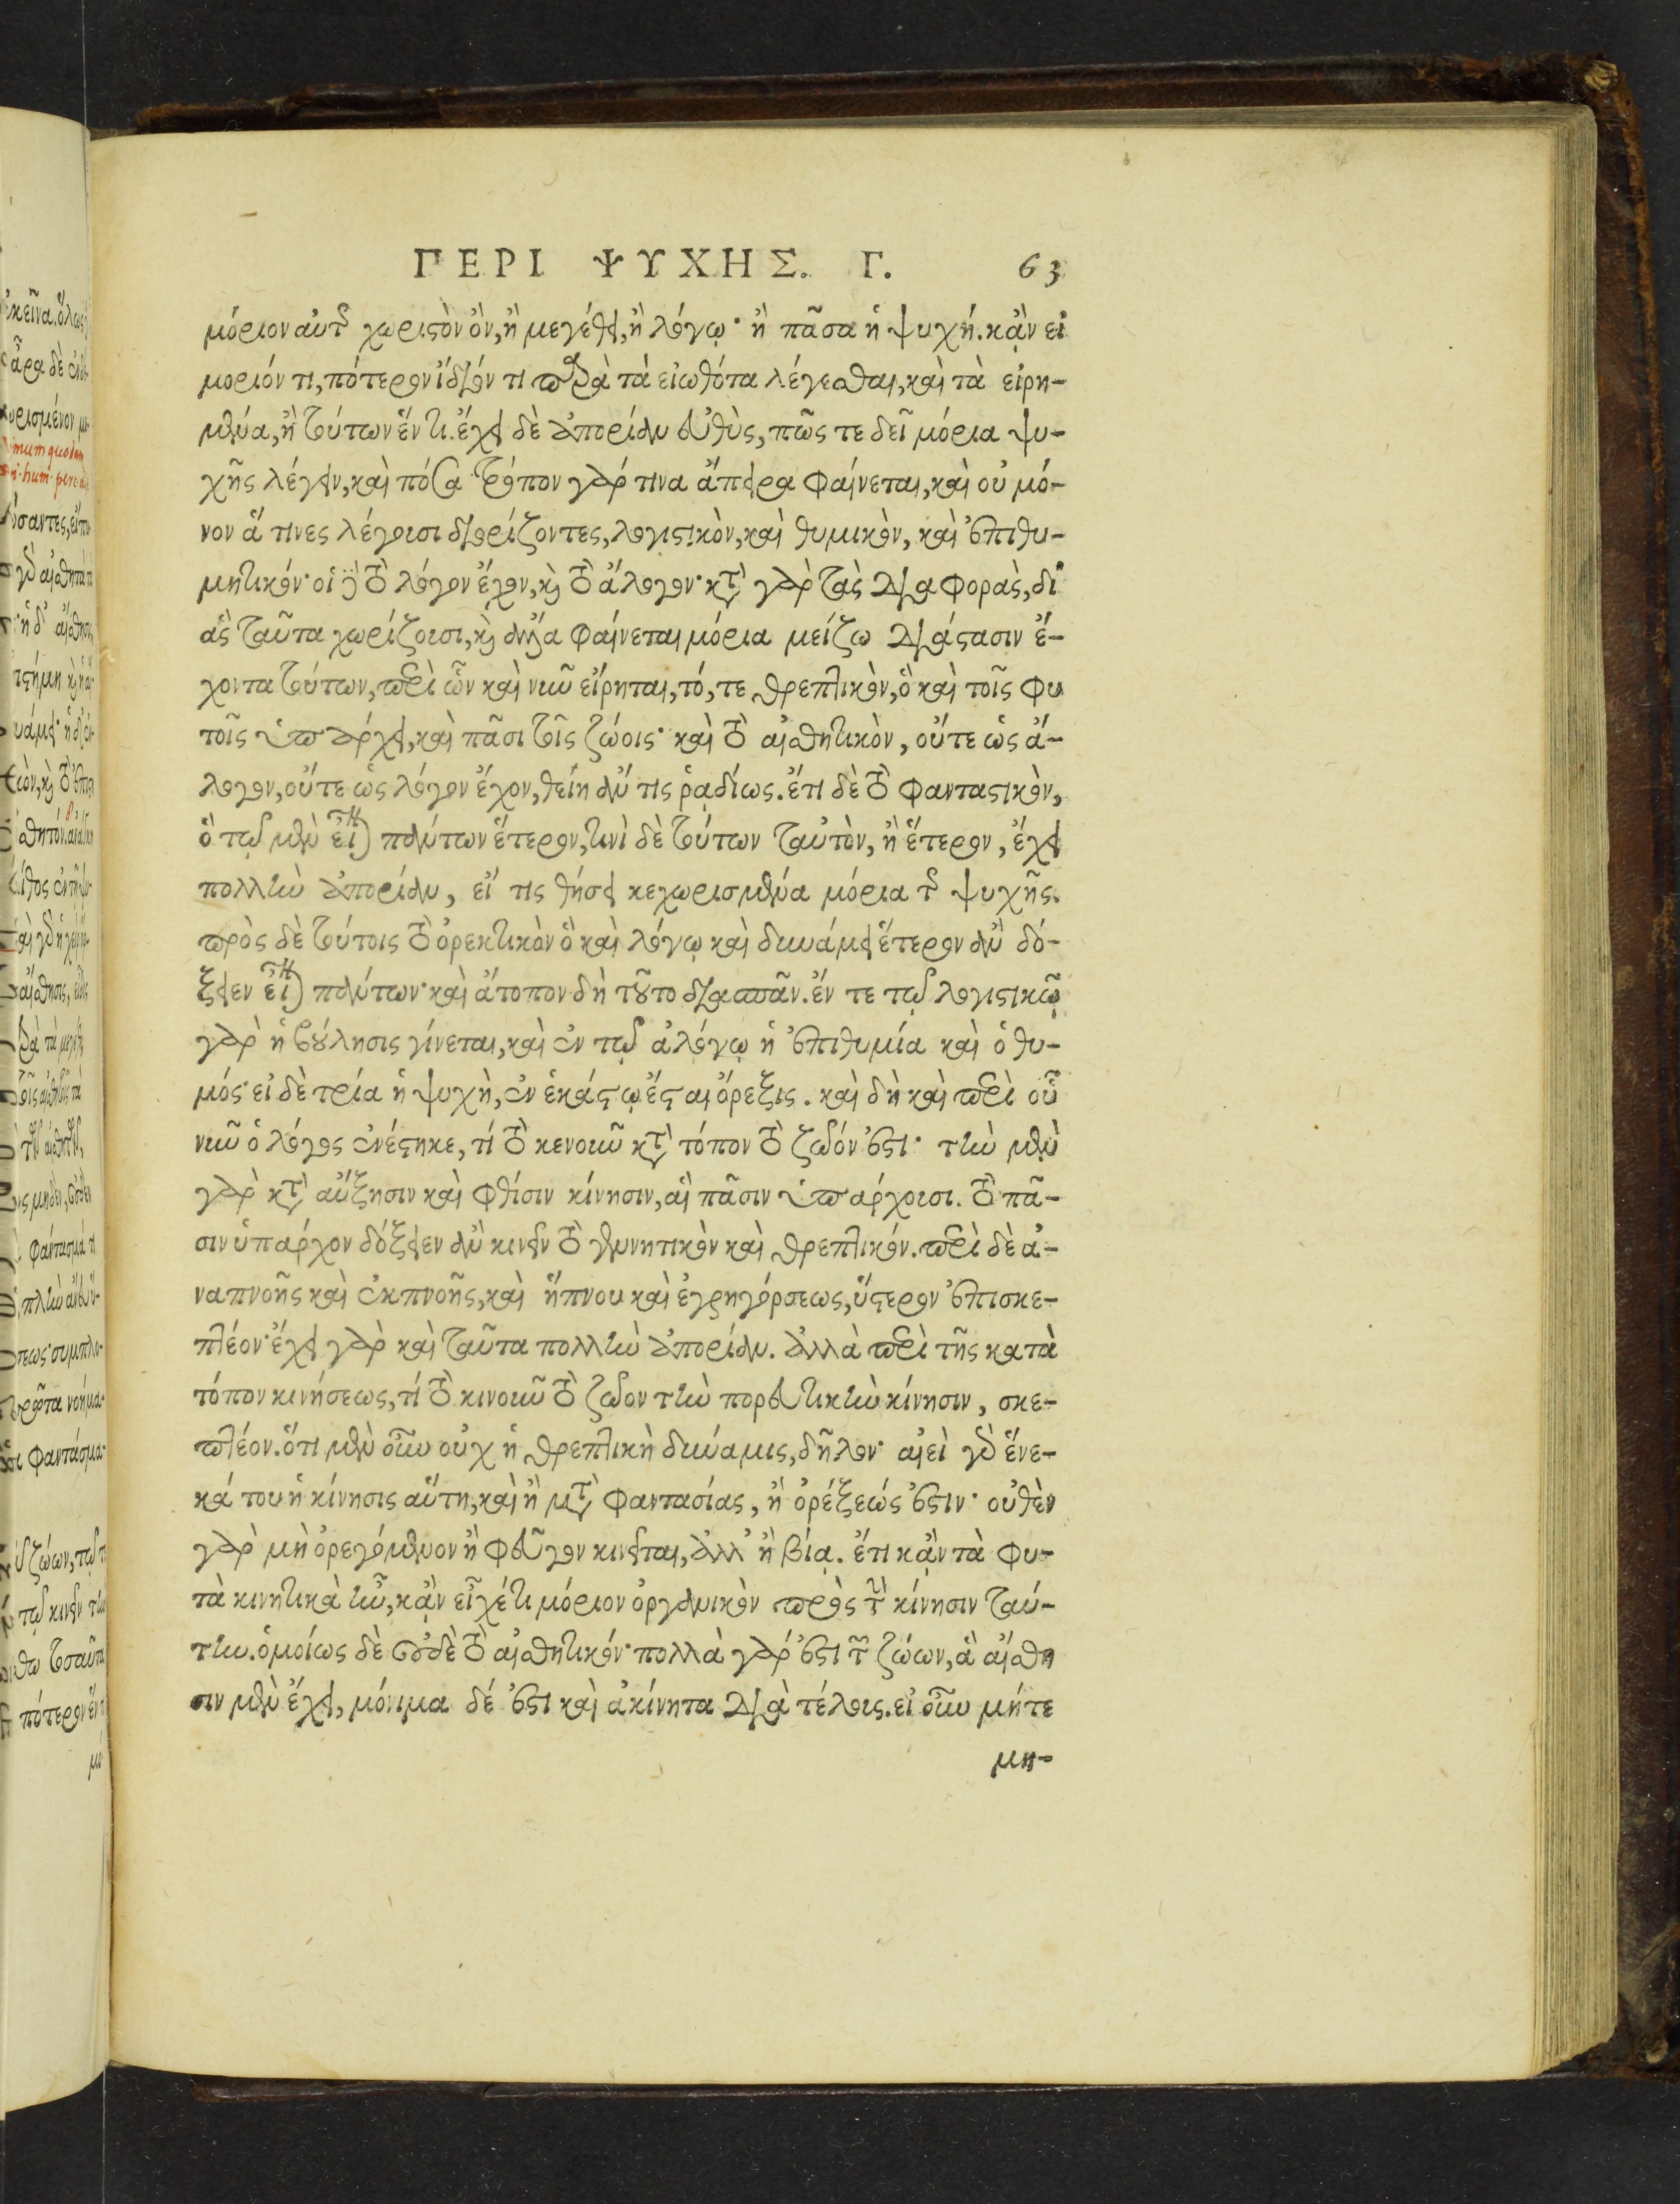 ΠΕΡΙ ΨΥΧΗΣ. Γ. 63
μόριον αὐτῆς χωριστὸν ὂν, ἢ μεγέθει, ἢ λόγῳ· ἢ πᾶσα ἡ ψυχή. κᾂν εἰ
μοριόν τι, πότερον ἴδιόν τι παρὰ τὰ εἰωθότα λέγεσθαι, καὶ τὰ εἰρη-
μένα, ἢ τούτων ἕν τι. ἔχει δὲ ἀπορίαν εὐθὺς, πῶς τε δεῖ μόρια ψυ-
χῆς λέγειν, καὶ πόσα. τρόπον γάρ τινα ἄπειρα φαίνεται, καὶ οὐ μό-
νον ἅ τινες λέγουσι διορίζοντες, λογιστικὸν, καὶ θυμικὸν, καὶ ἐπιθυ-
μητικόν· οἱ δὲ τὸ λόγον ἔχον, καὶ τὸ ἄλογον· κατὰ γὰρ τὰς διαφορὰς, δι'
ἃς ταῦτα χωρίζουσι, καὶ ἄλλα φαίνεται μόρια μείζω διάστασιν ἔ-
χοντα τούτων, περὶ ὧν καὶ νῦν εἴρηται, τό, τε θρεπτικὸν, ὃ καὶ τοῖς φυ
τοῖς ὑπάρχει, καὶ πᾶσι τοῖς ζώοις· καὶ τὸ αἰσθητικὸν, οὔτε ὡς ἄ-
λογον, οὔτε ὡς λόγον ἔχον, θείη ἄν τις ῥᾳδίως. ἔτι δὲ τὸ φανταστικὸν,
ὃ τῷ μὲν εἶναι πάντων ἕτερον, τινὶ δὲ τούτων ταὐτὸν, ἢ ἕτερον, ἔχει
πολλὴν ἀπορίαν, εἴ τις θήσει κεχωρισμένα μόρια τῆς ψυχῆς.
πρὸς δὲ τούτοις τὸ ὀρεκτικὸν ὃ καὶ λόγῳ καὶ δυνάμει ἕτερον ἂν δό-
ξειεν εἶναι πάντων· καὶ ἄτοπον δὴ τοῦτο διασπᾶν. ἔν τε τῷ λογιστικῷ
γὰρ ἡ βούλησις γίνεται, καὶ ἐν τῷ ἀλόγῳ ἡ ἐπιθυμία καὶ ὁ θυ-
μός· εἰ δὲ τρία ἡ ψυχὴ, ἐν ἑκάστῳ ἔσται ὄρεξις. καὶ δὴ καὶ περὶ οὗ
νῦν ὁ λόγος ἐνέστηκε, τί τὸ κενοῦν κατὰ τόπον τὸ ζῶόν ἐστι· τὴν μὲν
γὰρ κατὰ αὔξησιν καὶ φθίσιν κίνησιν, αἳ πᾶσιν ὑπάρχουσι. τὸ πᾶ-
σιν ὑπάρχον δόξειεν ἂν κινεῖν τὸ γεννητικὸν καὶ θρεπτικόν. περὶ δὲ ἀ-
ναπνοῆς καὶ ἐκπνοῆς, καὶ ἥπνου καὶ ἐγρηγόρσεως, ὕστερον ἐπισκε-
πτέον· ἔχει γὰρ καὶ ταῦτα πολλὴν ἀπορίαν. ἀλλὰ περὶ τῆς κατὰ
τόπον κινήσεως, τί τὸ κινοῦν τὸ ζῶον τὴν πορευτικὴν κίνησιν, σκε-
πτέον. ὅτι μὲν οὖν οὐχ ἡ θρεπτικὴ δύναμις, δῆλον· αἰεὶ γὰρ ἕνε-
κά του ἡ κίνησις αὕτη, καὶ ἢ μετὰ φαντασίας, ἢ ὀρέξεώς ἐστιν· οὐθὲν
γὰρ μὴ ὀρεγόμενον ἢ φεῦγον κινεῖται, ἀλλ' ἢ βίᾳ. ἔτι κᾂν τὰ φυ-
τὰ κινητικὰ ἦν, κᾂν εἶχέ τι μόριον ὀργανικὸν πρὸς τὴν κίνησιν ταύ-
την. ὁμοίως δὲ οὐδὲ τὸ αἰσθητικόν· πολλὰ γάρ ἐστι τῶν ζώων, ἃ αἴσθη
σιν μὲν ἔχει, μόνιμα δέ ἐστι καὶ ἀκίνητα διὰ τέλους. εἰ οὖν μήτε
μη-